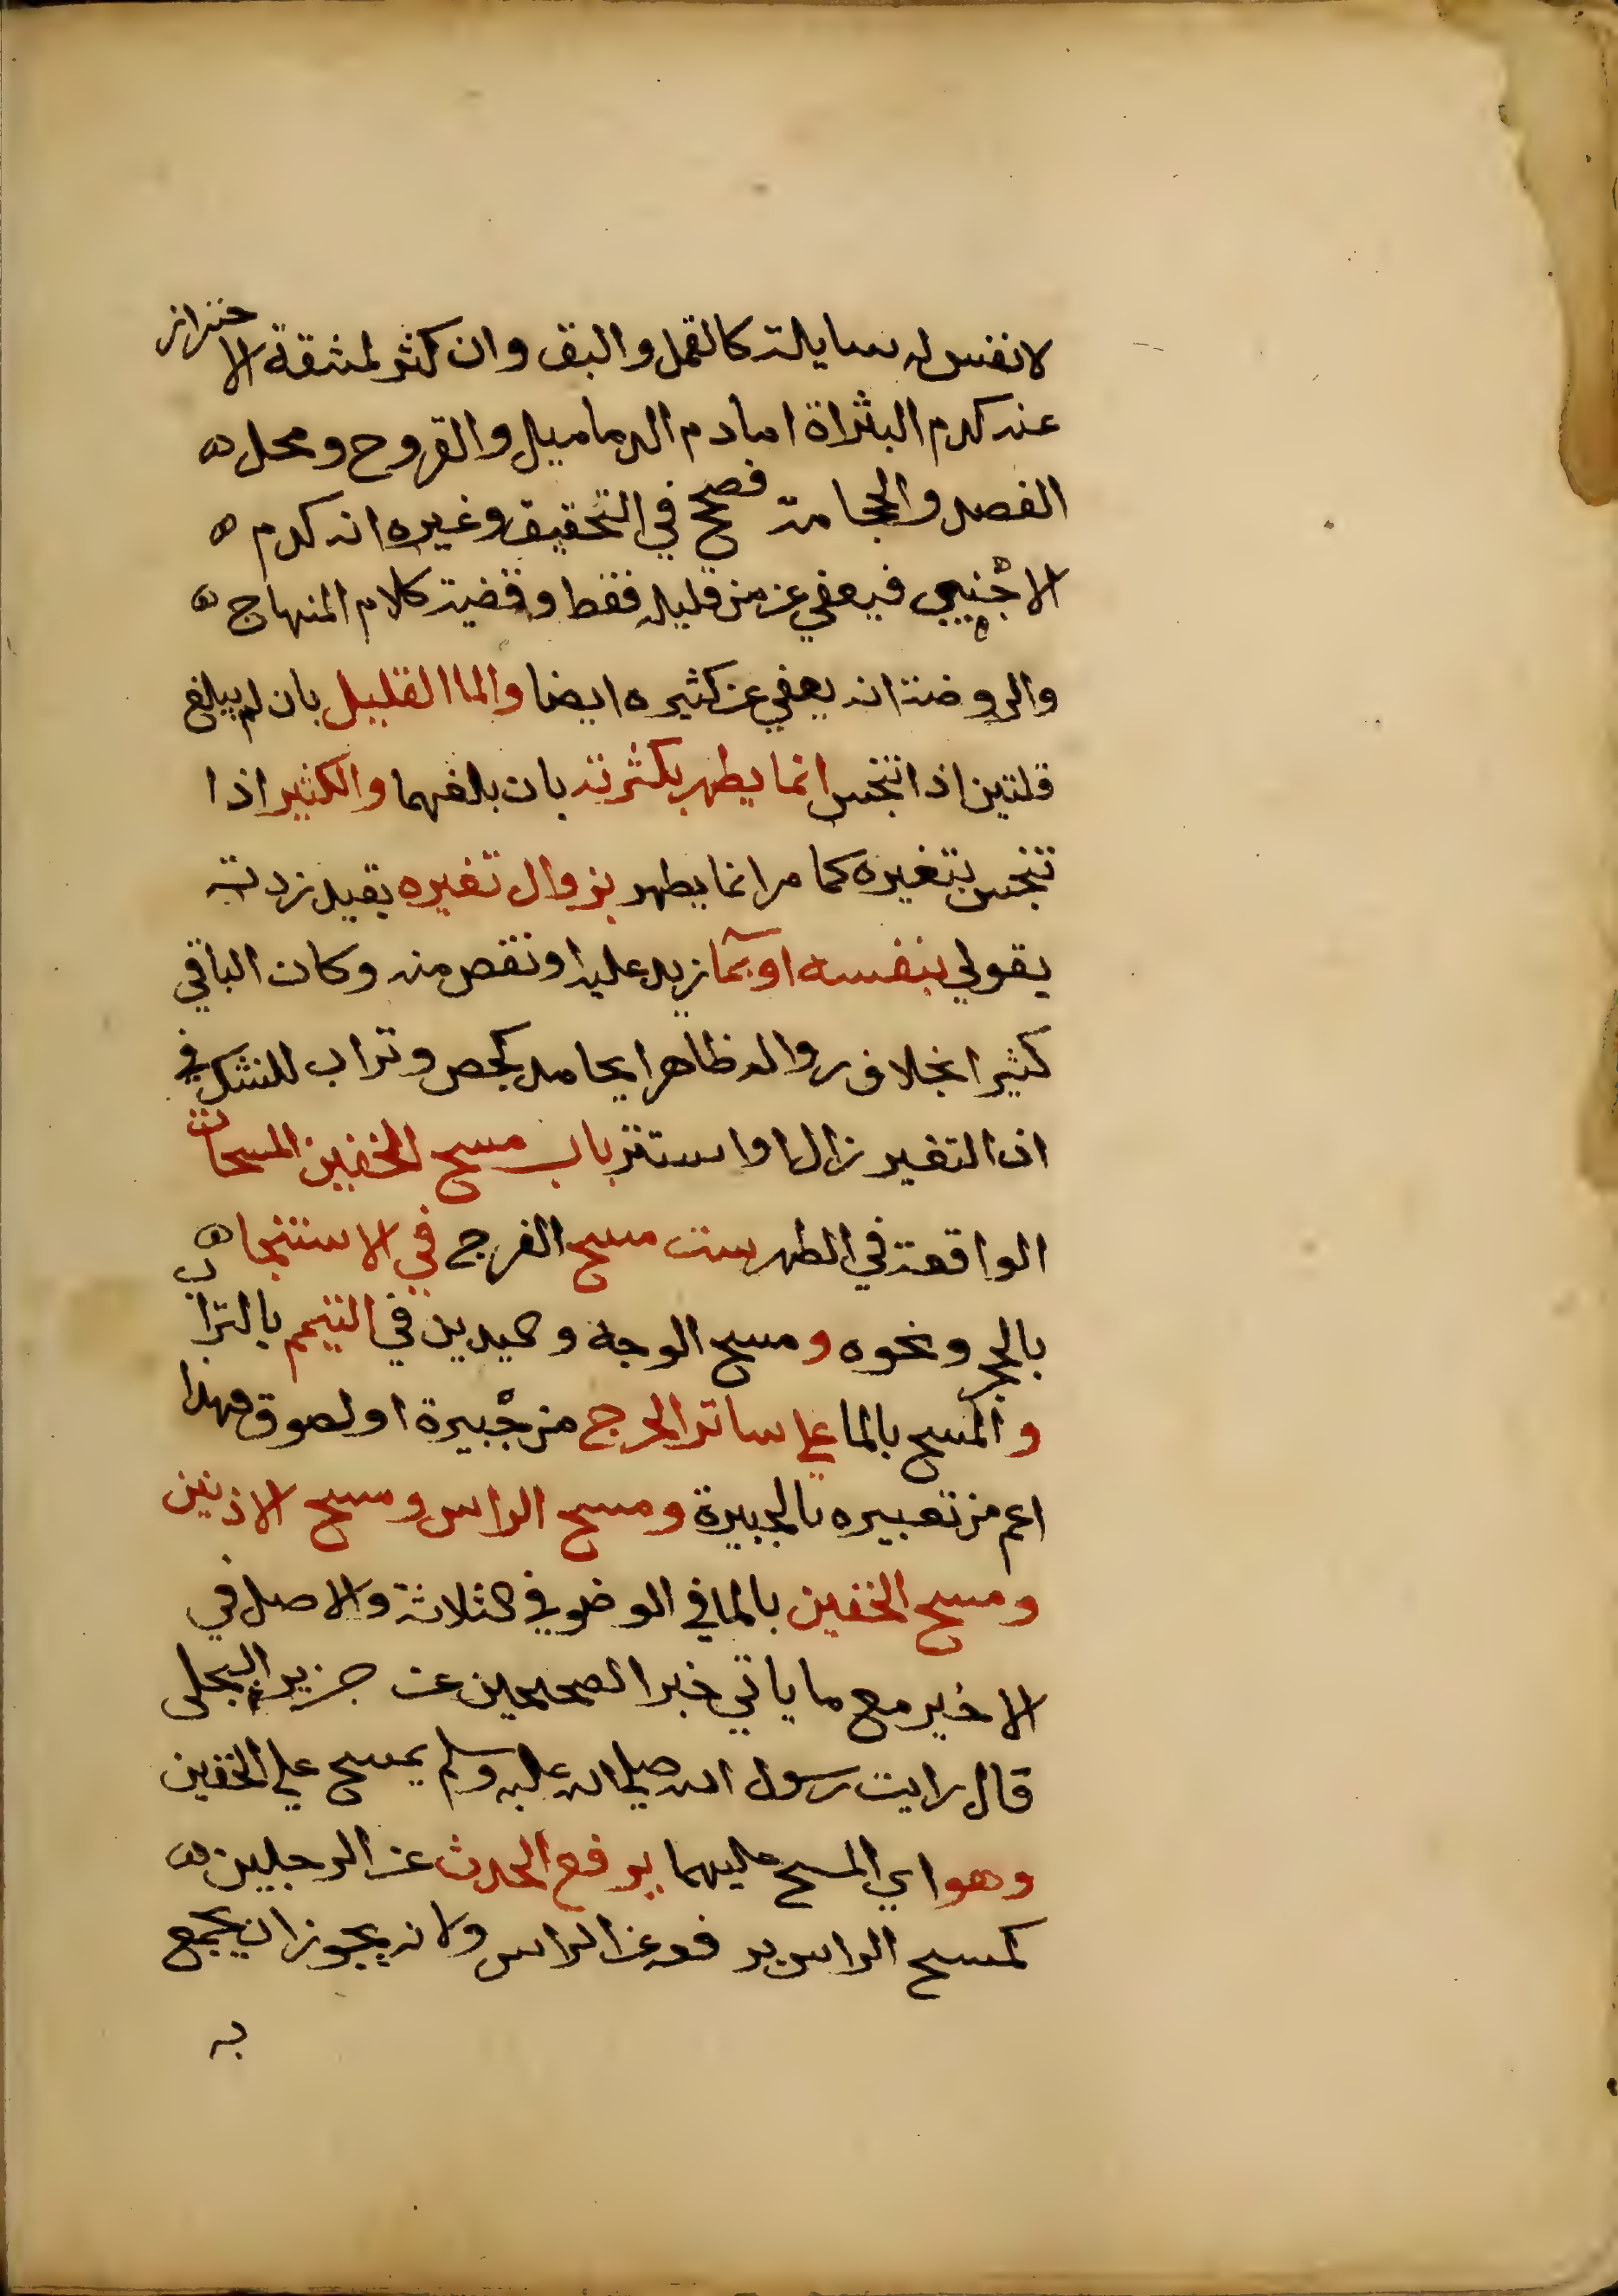 لا نفس له سايلة كالقمل والبق وان كثر لمشقة الاحتراز
عنه كدم البثراة اما دم الدماميل والقروح ومحل ه
الفصد والحجامة فصحح في التحقيق وغيره انه كدم ه
الاجنبي فيعفي عن من قليله فقط وقضية كلام المنهاج ه
والروضة انه يعفي عن كثيره ايضا والما القليل بان لم يبلغ
قلتين اذا تنجس انما يطهر بكثرته بان بلغهما والكثير اذا
تنجس بتغيره كما مر انما يطهر بزوال تغيره بقيد زدته
بقولي بنفسه او بمآ زيد عليه او نقص منه وكان الباقي
كثيرا بخلاف زواله ظاهرا بجامد كجص وتراب للشك في
ان التغير زال او استتر باب مسح الخفين المسحات
الواقعة في الطهر ست مسح الفرج في الاستنجا ه
بالحجر ونحوه ومسح الوجه واليدين في التيمم بالتراب
والمسح بالما علي ساتر الجرح من جبيرة او لصوق فهذا
اعم من تعبيره بالجبيرة ومسح الراس ومسح الاذنين
ومسح الخفين بالما في الوضو في الثلاثة والاصل في
الاخير مع ما ياتي خبر الصحيحين عن جرير البجلي
قال رايت رسول الله صلي الله عليه وسلم يمسح علي الخفين
وهو اي المسح عليهما يرفع الحدث عن الرجلين ه
كمسح الراس يرفعه عن الراس ولانه يجوز ان يجمع
به